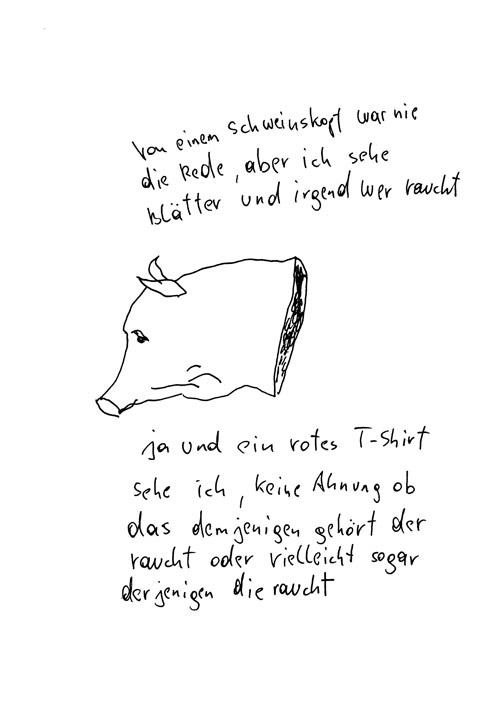 Von einem Schweinskopf war nie
die Rede, aber ich sehe
Blätter und irgend wer raucht
ja und ein rotes T-Shirt
sehe ich, keine Ahnung ob
das demjenigen gehört der
raucht oder vielleicht sogar
derjenigen die raucht